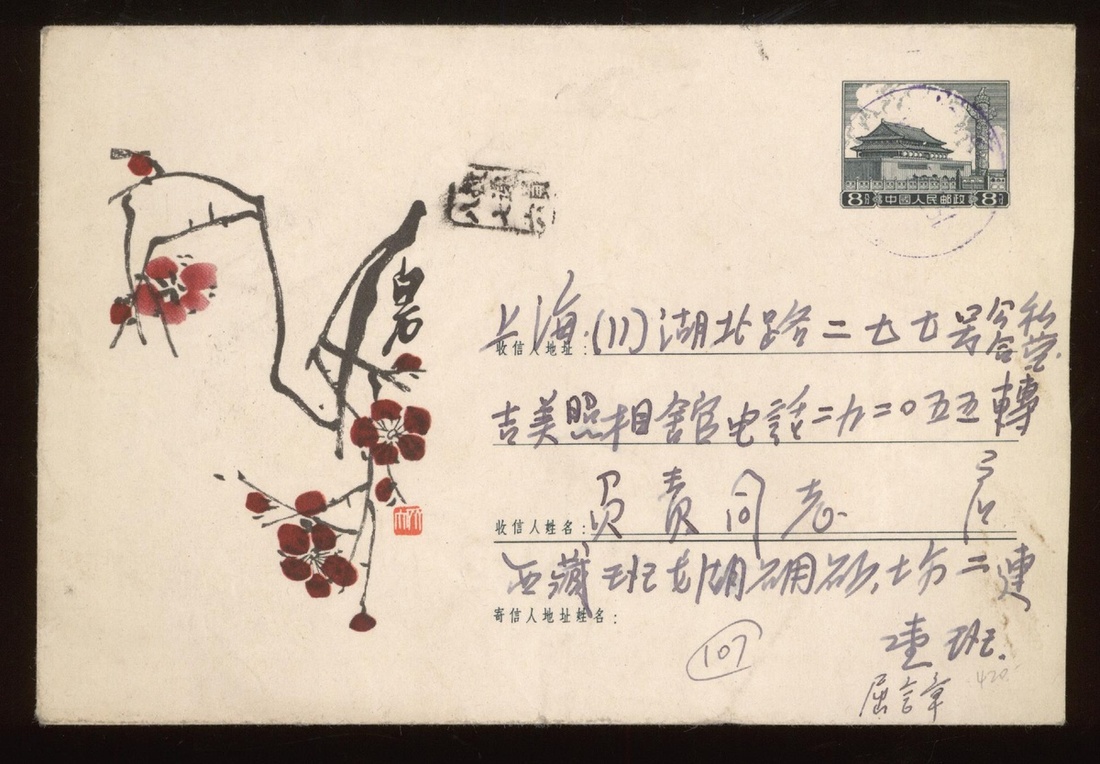 8分 中國人民邮政 8分
白石
收信人地址：上海(11)湖北路二七七号公私合营
吉美照相舘电話二九二〇五五轉
收信人姓名：负责同志 启
西藏班戈湖硼砂 二連
寄信人地址姓名：
班
107
420
屈言章